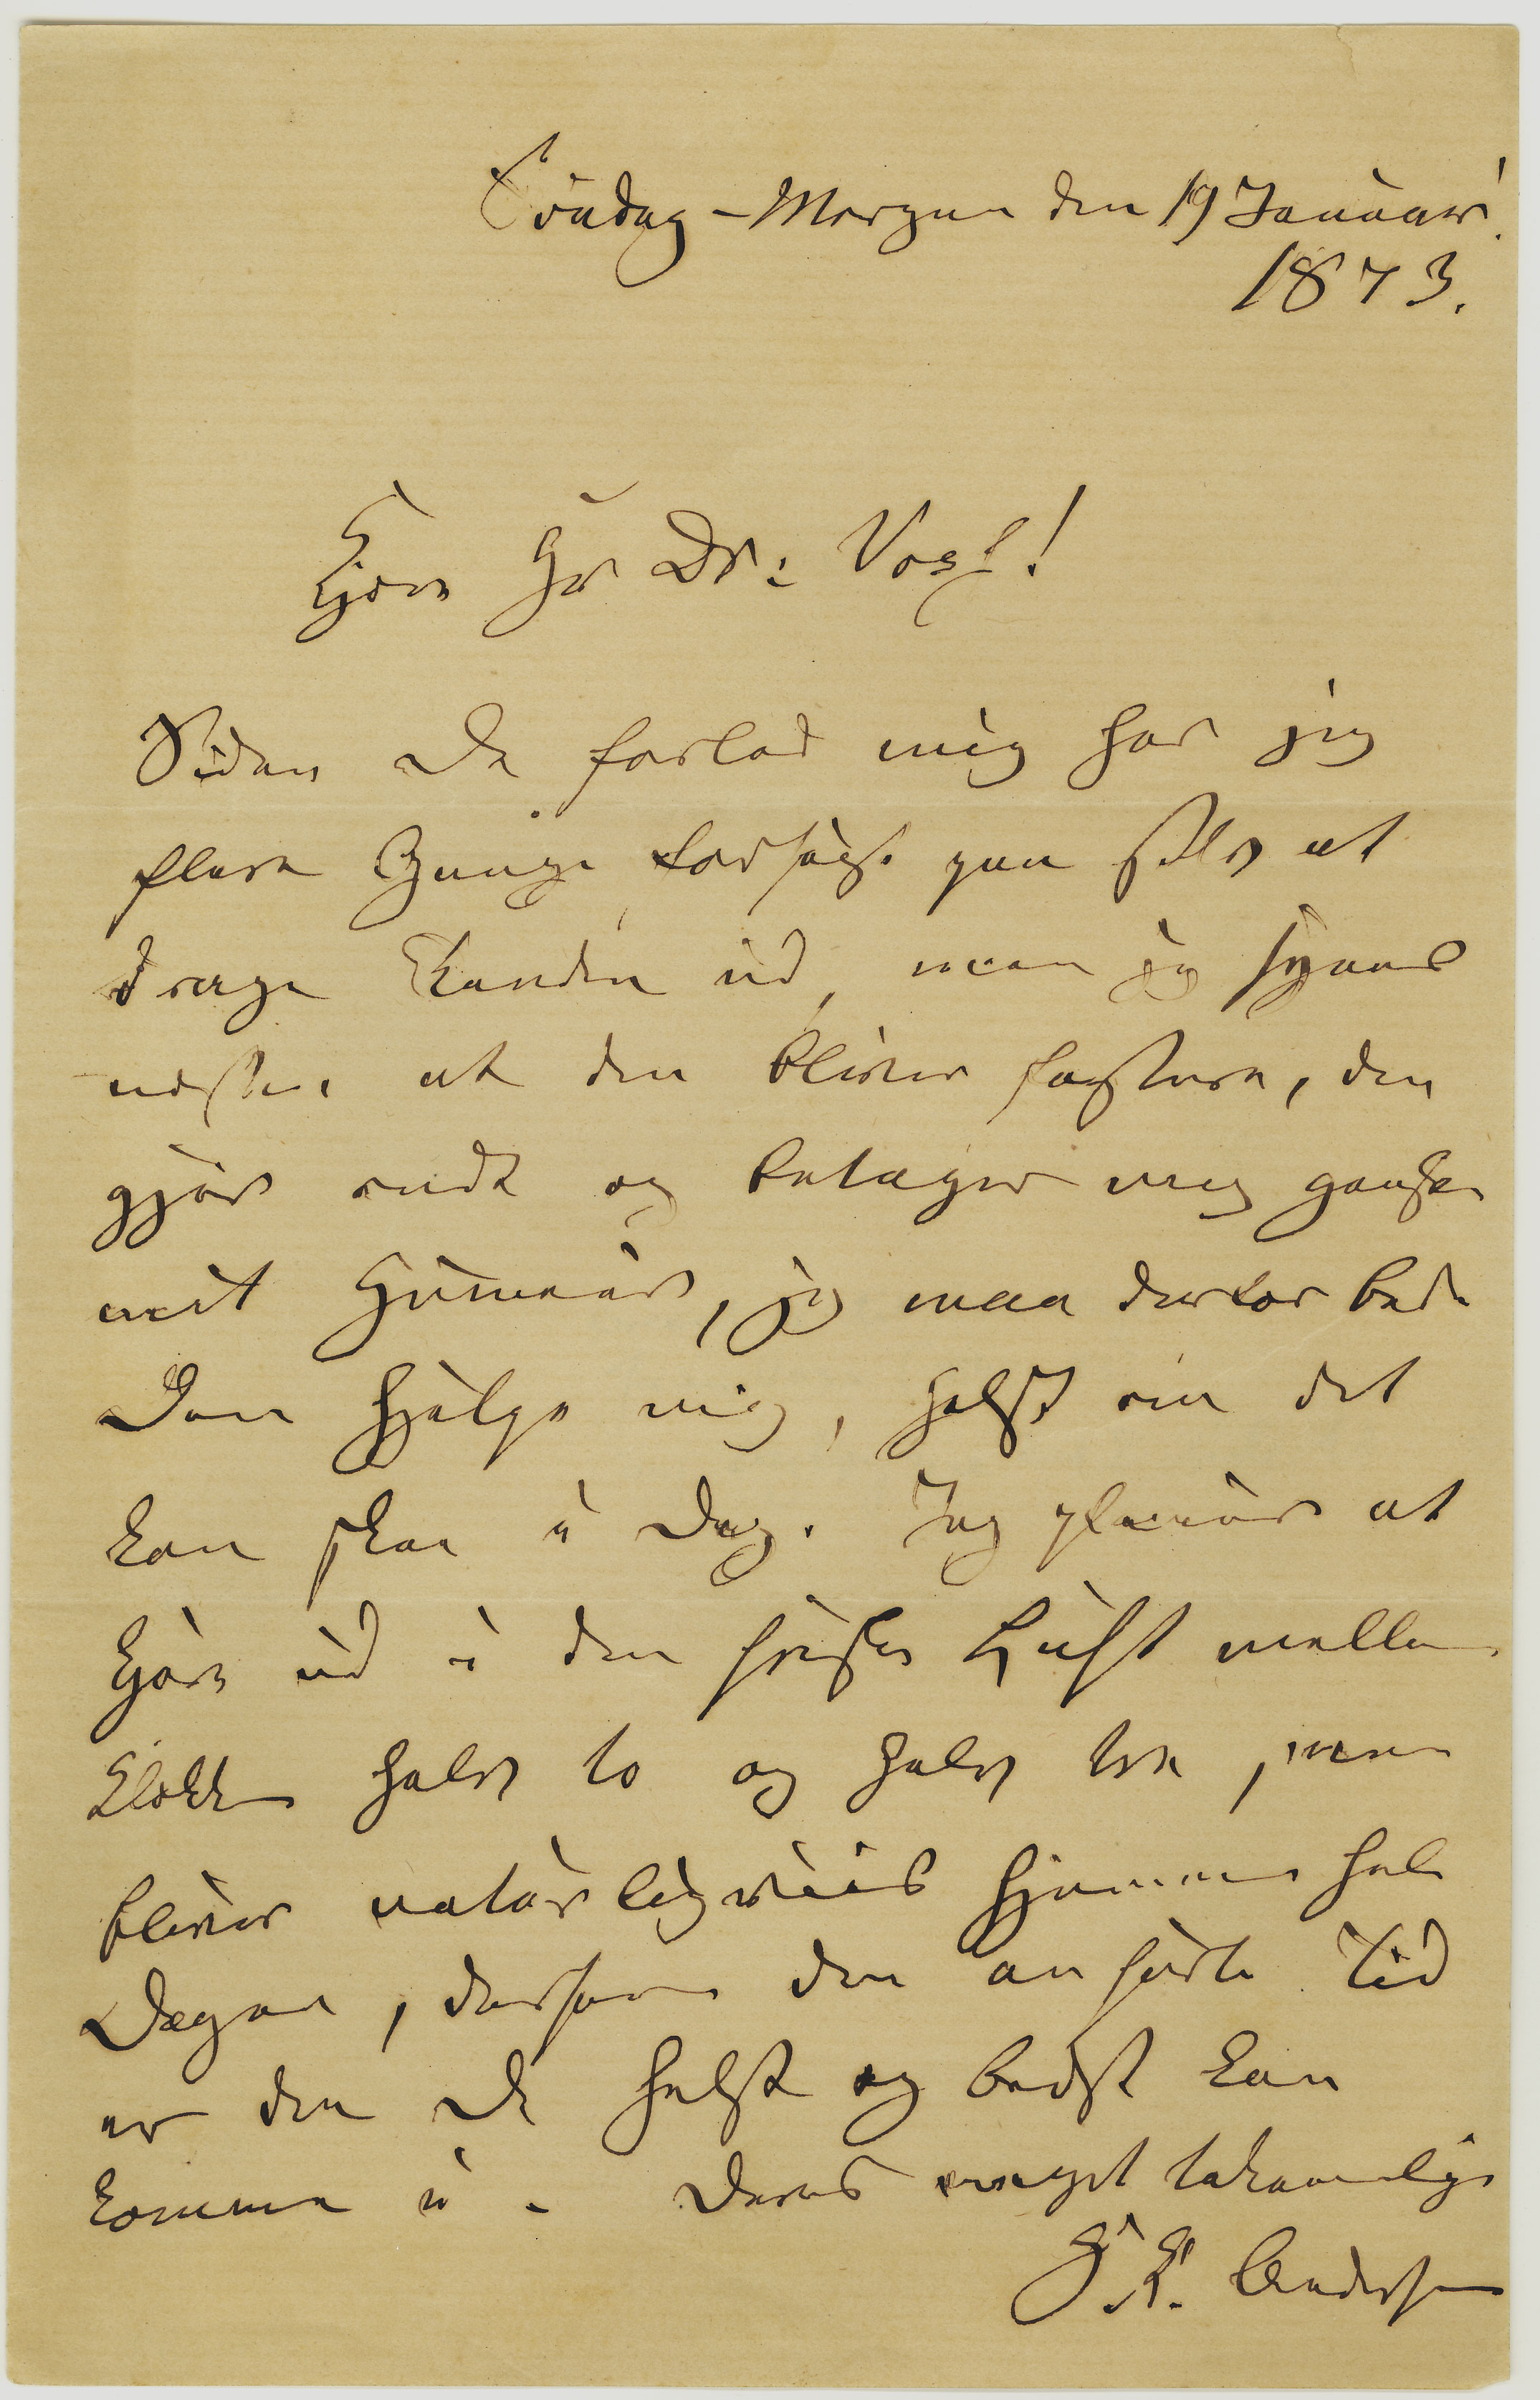 Søndag-Morgen den 19 Januar
1873.
Kjære Hr Dr: Voss!
Siden De forlod mig har jeg
flere Gange, forsøgt paa selv at
drage Tanden ud, men jeg synes
næsten at den bliver fastere, den
gjør ondt og betager mig ganske
mit Humeur, jeg maa derfor bede
Dem hjælpe mig, helst om det
kan skee i Dag. Jeg pleier at
kjøre ud i den friske Luft mellem
Klokken halv to og halv tre, men
bliver naturligviis hjemme hele
Dagen, dersom den anførte Tid
er den De helst og bedst kan
komme i. Deres meget taknemlige
H. C. Andersen